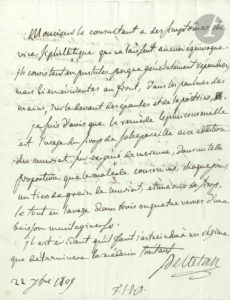 Monsieur le consultant a des symptomes du
vice syphilitique qui ne laissent aucun equivoque
ils consistent en pustules, presque généralement répandues,
mais bien évidentes au front, dans les paumes des
mains, sur le devant des épaules et de la poitrine.
je suis d'avis que le remede le plus convenable
est l'usage du syrop de salsepareille avec addition
du muriate sur oxigené de mercure, dans une telle
proportion que le malade consomme chaque jour
un tiers de grain de muriate, et une once de syrop.
le tout en lavage dans trois ou quatre verres d'une
boisson mucilagineuse.
il est à dout qu'il faut s'astreindre à un régime
que determinera le medecin traitant
22 9bre 1809
Pelletan